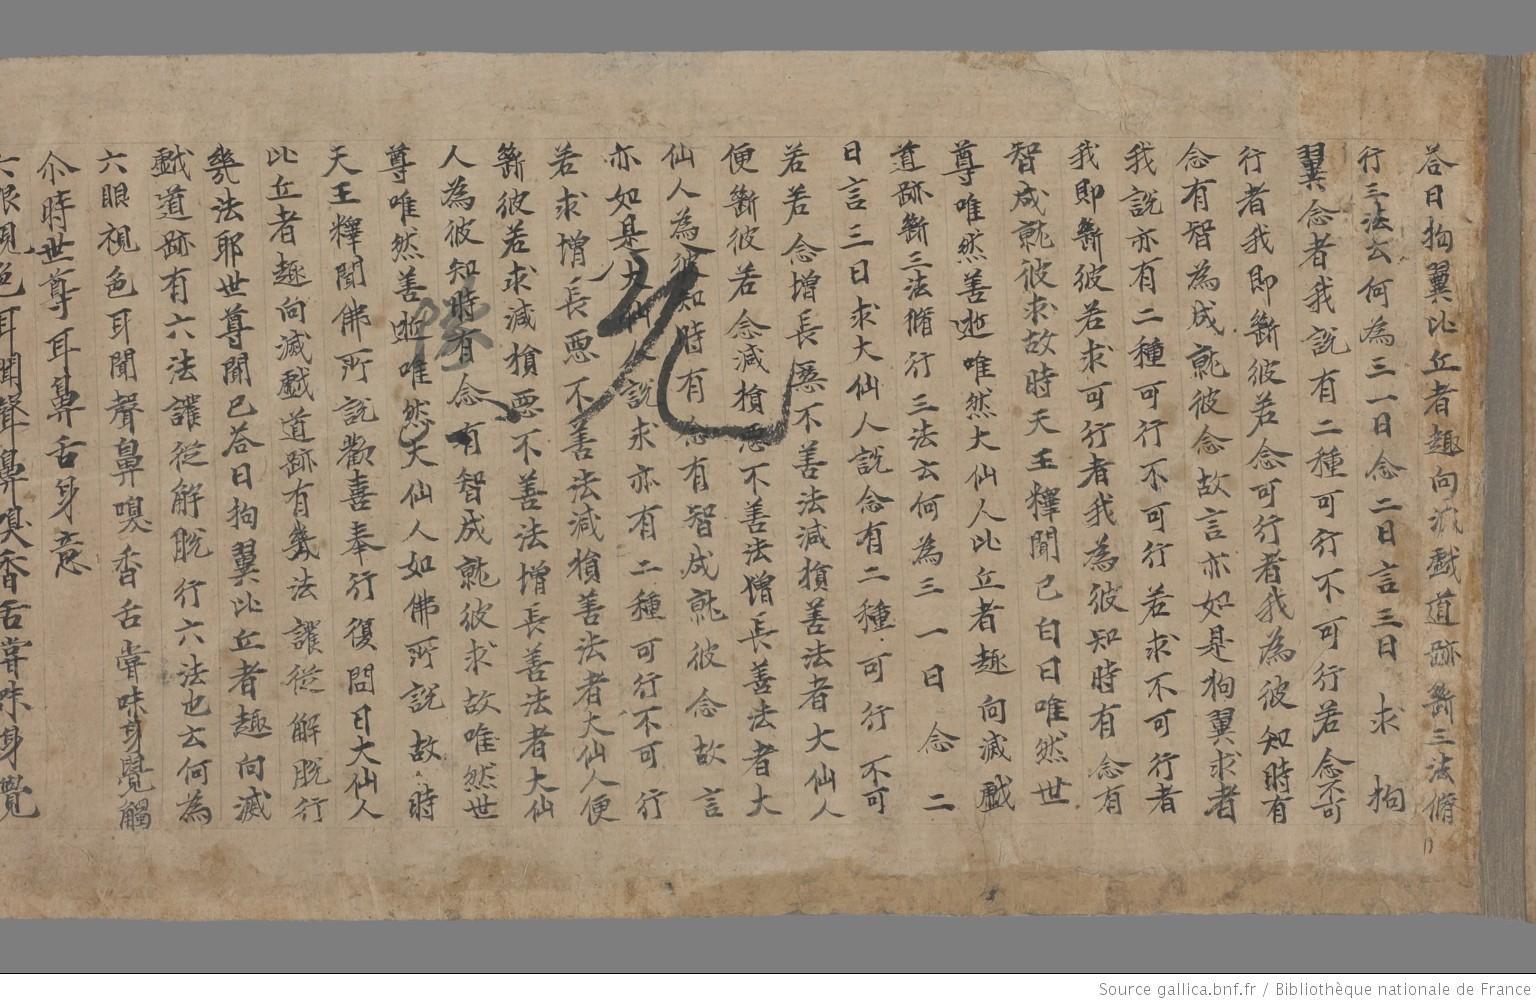 答曰拘翼比丘者趣向滅戲道跡斷三法脩
行三法云何為三一曰念二曰言三曰求拘
翼念者我說有二種可行不可行若念不可
行者我即斷彼若念可行者我為彼知時有
念有智為成就彼念故言亦如是拘翼求者
我說亦有二種可行不可行若求不可行者
我即斷彼若求可行者我為彼知時有念有
智成就彼求故時天王釋聞已白曰唯然世
尊唯然善逝唯然大仙人比丘者趣向滅戲
道跡斷三法脩行三法云何為三一曰念二
曰言三曰求大仙人說念有二種可行不可
若若念增長惡不善法減損善法者大仙人
便斷彼若念減損惡不善法增長善法者大
仙人為彼知時有念有智成就彼念故言
亦如是大仙人說求亦有二種可行不可行
若求增長惡不善法減損善法者大仙人便
斷彼若求減損惡不善法增長善法者大仙
人為彼知時有念有智成就彼求故唯然世
尊唯然善逝唯然大仙人如佛所說故時
天王釋聞佛所說歡喜奉行復問曰大仙人
比丘者趣向滅戲道跡有幾法護從解脫行
幾法耶世尊聞已答曰拘翼比丘者趣向滅
戲道跡有六法護從解脫行六法也云何為
六眼視色耳聞聲鼻嗅香舌嘗味身覺觸
尒時世尊耳鼻舌身意
六眼視色耳聞聲鼻嗅香舌嘗味身覺
九
Source gallica.bnf.fr / Bibliothèque nationale de France